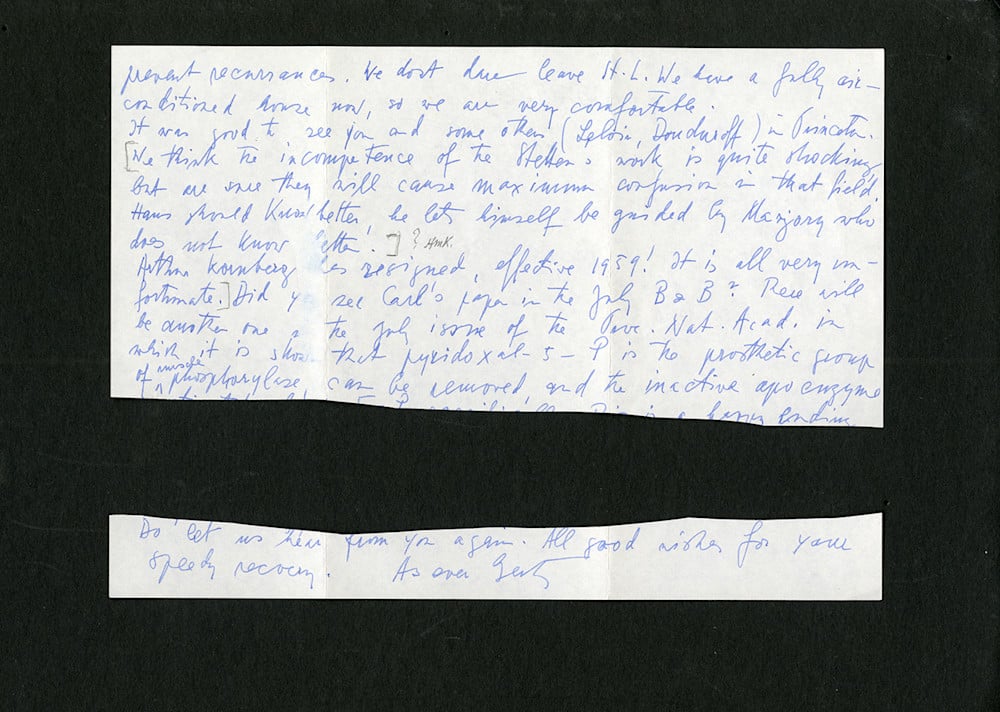 prevent recurrances. We dont dare leave St. L. We have a fully air-
conditioned house now, so we are very comfortable.
It was good to see you and some others (Leloir, Doudoroff) in Princeton.
[We think the incompetence of the Stetten's work is quite shocking
but are sure they will cause maximum confusion in that field.
Hans should know better he lets himself be guided by Marjory who
does not know better!] ? HMK.
Arthur Kornberg has resigned, effective 1959! It is all very un-
fortunate.] Did you see Carl's paper in the July B & B? There will
be another one in the July issue of the Proc. Nat. Acad. in
which it is shown that pyridoxal-5-P is the prosthetic group
of muscle phosphorylase can be removed, and the inactive apoenzyme
is a happy ending
Do let us hear from you again. All good wishes for your
speedy recovery. As ever Gerty